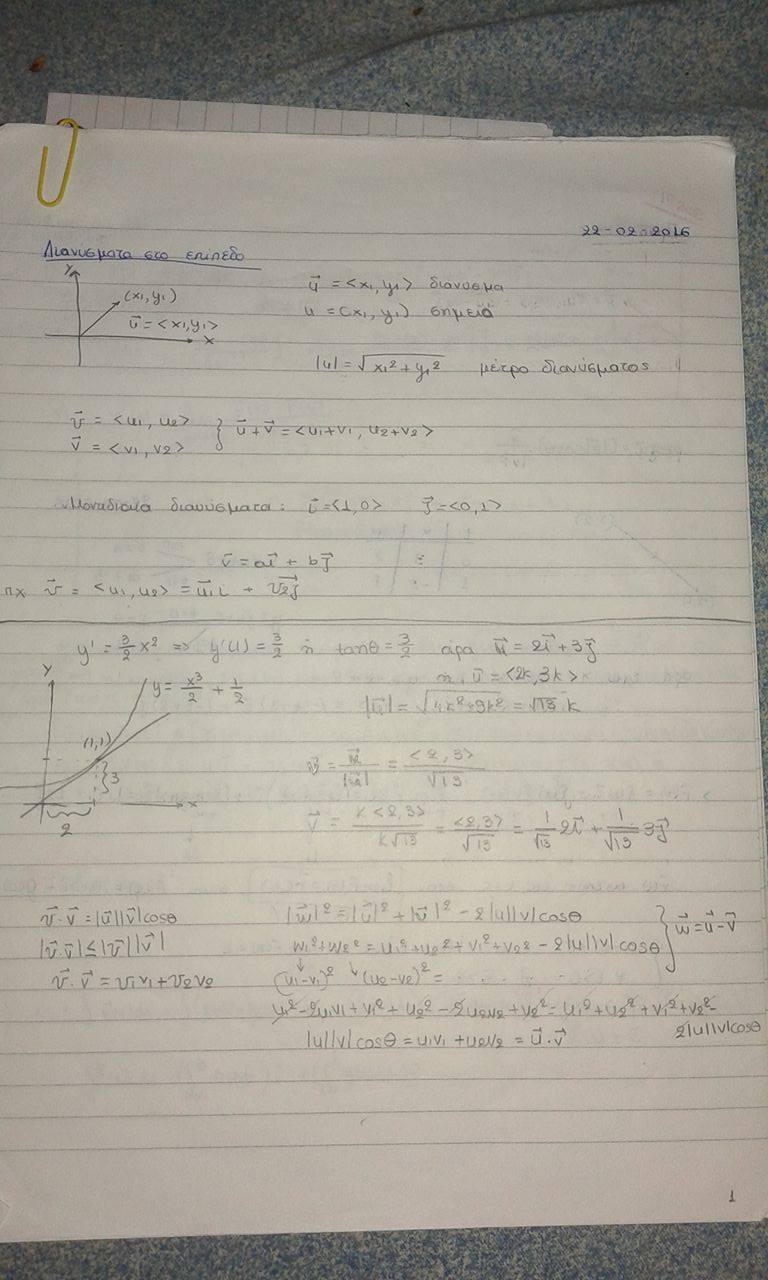 22-02-2016
Διανύσματα στο επίπεδο
y
(x₁,y₁)
u⃗ = <x₁,y₁>
x
u⃗ = <x₁, y₁> διάνυσμα
u = (x₁, y₁) σημείο
|u| = √(x₁² + y₁²) μέτρο διανύσματος
v⃗ = <u₁, u₂>
v⃗ = <v₁, v₂>
} u⃗+v⃗ = <u₁+v₁, u₂+v₂>
Μοναδιαία διανύσματα: i⃗=<1,0> j⃗=<0,1>
v⃗ = ai⃗ + bj⃗
πχ v⃗ = <u₁, u₂> = u⃗₁i + v₂j⃗
y' = 3/2 x² => y'(1) = 3/2 ή tanθ = 3/2 άρα u⃗ = 2i⃗ + 3j⃗
ή u⃗ = <2k, 3k>
|u⃗| = √(4k²+9k²) = √13 k
y
y = x³/2 + 1/2
(1,1)
3
x
2
= <2,3>/√13
v⃗ = k<2,3>/k√13 = <2,3>/√13 = 1/√13 2i⃗ + 1/√13 3j⃗
v⃗·v⃗ = |u⃗||v⃗|cosθ
|v⃗·v⃗| ≤ |v⃗||v⃗|
v⃗·v⃗ = v₁v₁ + v₂v₂
|w⃗|² = |u⃗|² + |v⃗|² - 2|u||v|cosθ
w₁²+w₂² = u₁²+u₂²+v₁²+v₂² - 2|u||v|cosθ
} w⃗ = u⃗-v⃗
(u₁-v₁)² (u₂-v₂)² =
u₁²-2u₁v₁+v₁²+u₂²-2u₂v₂+v₂² = u₁²+u₂²+v₁²+v₂²-
2|u||v|cosθ
|u||v|cosθ = u₁v₁ + u₂v₂ = u⃗·v⃗
1